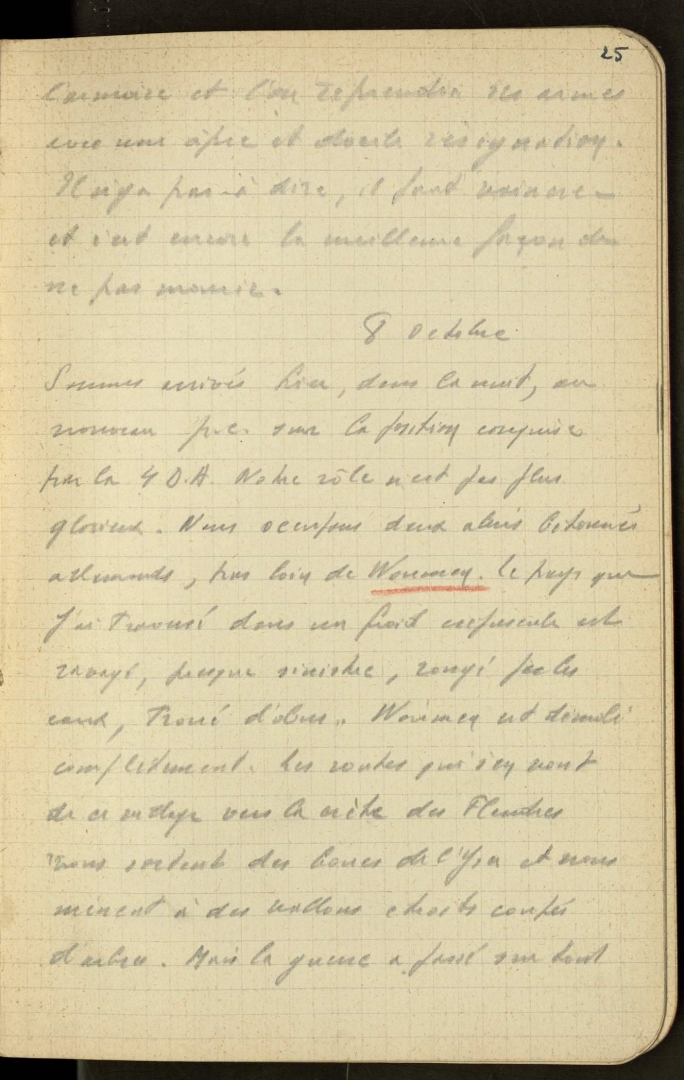 25
l'armure et l'on reprendra ses armes
avec une âpre et docile résignation.
Il n'y a pas à dire, il faut vaincre
et c'est encore la meilleure façon de
ne pas mourir.
8 octobre
Sommes arrivés hier, dans la nuit, au
nouveau p.c. sur la position conquise
par la 4 D.A. Notre rôle n'est pas plus
glorieux. Nous occupons deux abris bétonnés
allemands, pas loin de Woumen. Le pays que
j'ai trouvé dans un froid crépuscule est
ravagé, presque sinistre, rongé par les
eaux, troué d'obus. Woumen est démoli
complètement. Les routes qui s'en vont
de ce village vers la crête des Flandres
nous sortent des boues de l'Yser et nous
mènent à des vallons étroits coupés
d'arbres. Mais la guerre a passé sur tout